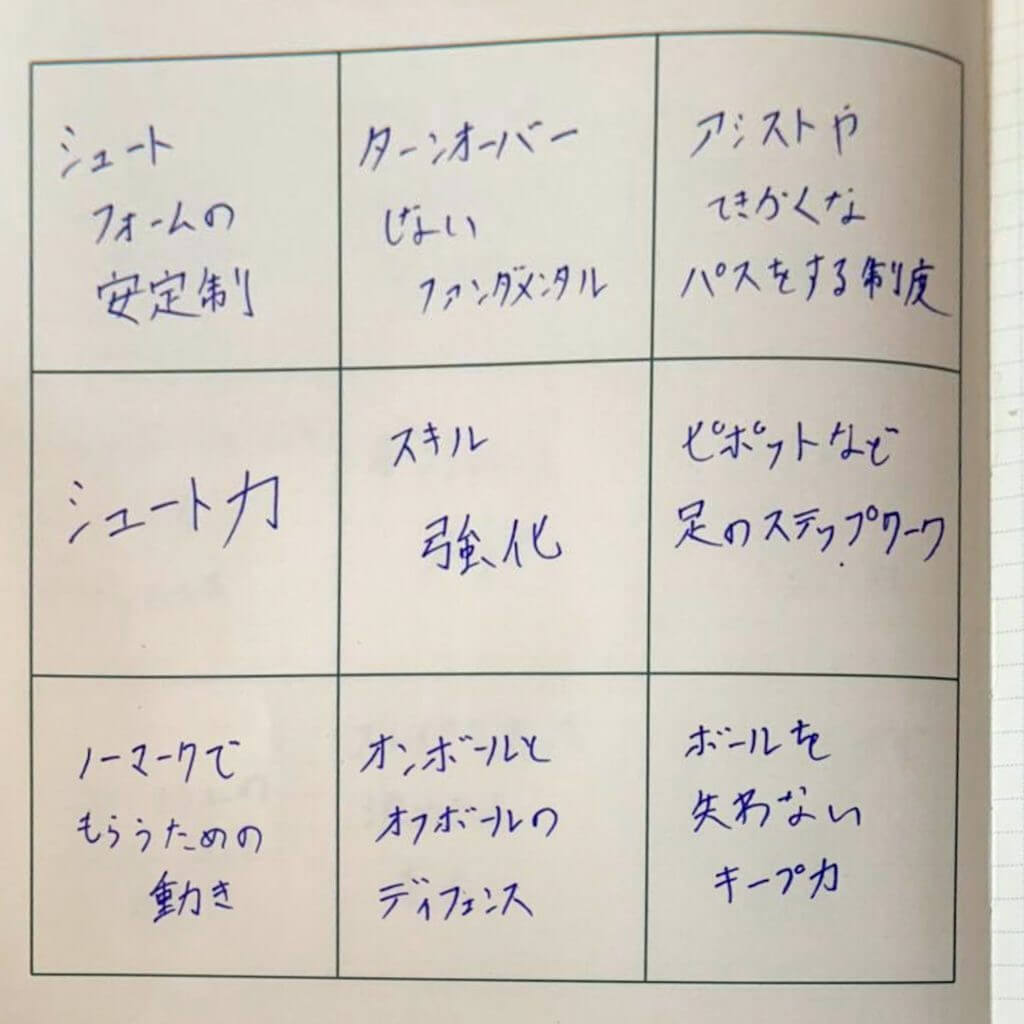 シュート
フォームの
安定制
ターンオーバー
しない
ファンダメンタル
アシストや
てきかくな
パスをする制度
シュート力
スキル
強化
ピポットなど
足のステップワーク
ノーマークで
もらうための
動き
オンボールと
オフボールの
ディフェンス
ボールを
失わない
キープ力